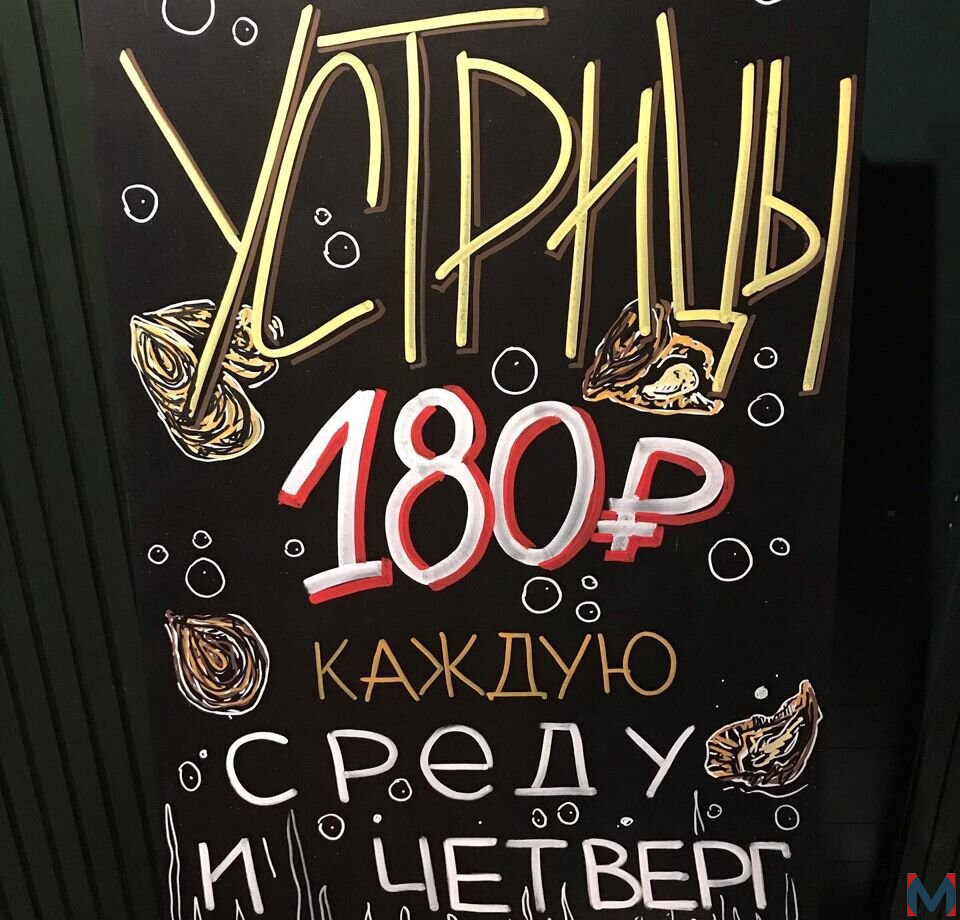 УСТРИЦЫ
180₽
КАЖДУЮ
СРеДУ
И ЧЕТВЕРГ
M